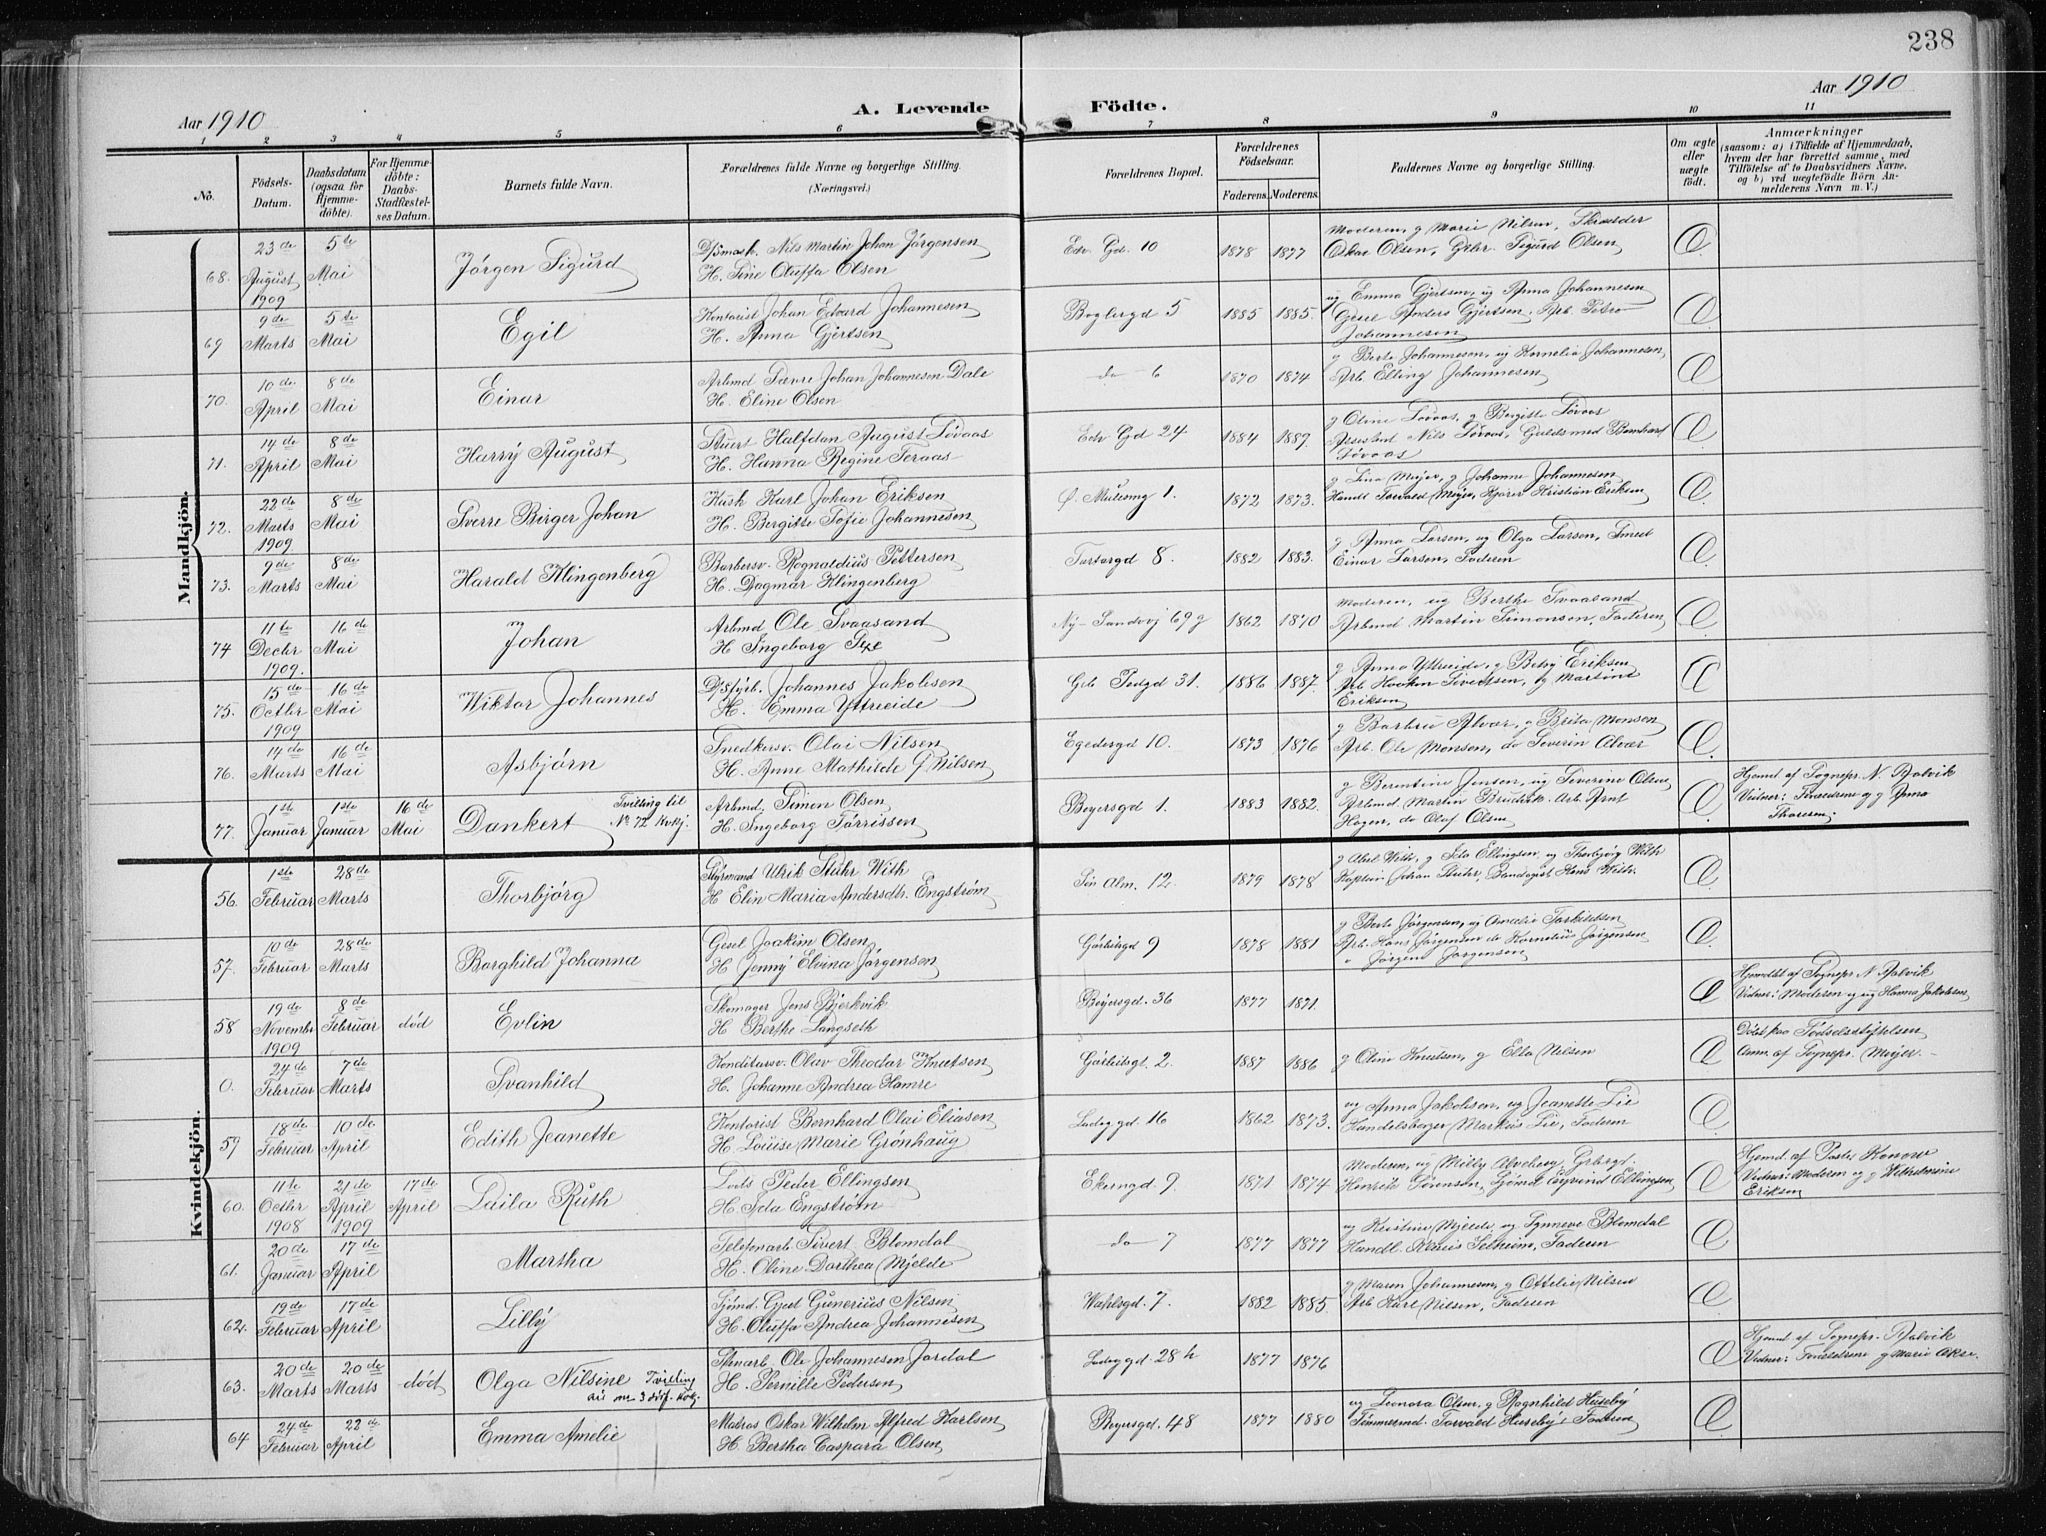 238
Aar 1910
A. Levende Födte.
Aar 1910
1 2 3 4 5 6 7 8 9 10 11
No.
Födsels-Datum.
Daabsdatum (ogsaa for Hjemmedöbte).
For Hjemmedöbte: Daabs-Stadfæstelses Datum.
Barnets fulde Navn.
Forældrenes fulde Navne og borgerlige Stilling.
(Næringsvei.)
Forældrenes Bopæl.
Forældrenes Födselsaar.
Faderens. Moderens.
Faddernes Navne og borgerlige Stilling.
Om ægte eller uægte födt.
Anmærkninger
(saasom: a) i Tilfælde af Hjemmedaab, hvem der har forrettet samme, med Tilföielse af to Daabsvidners Navne, og b) ved uægtefödte Börn Anmelderens Navn m. V.)
Mandkjön.
68. 23de August 1909 5te Mai Jørgen Sigurd Nils Martin Johan Jørgensen
H. Sine Oluffa Olsen Edv Gd. 10 1878 1877 Moderen, g Marie Nilsen, Skrædder
Oskar Olsen, Gtbr. Sigurd Olsen Æ
69 9de Marts 5te Mai Egil Kontorist Johan Edvard Johannesen
H. Anna Gjertsen Boglergd 5 1885 1885. ug Emma Gjertsen, ug Anna Johannesen
Gesel Anders Gjertsen. Arb. Petro
Johannesen Æ
70. 10de April 8de Mai Einar Arbmd Sævre Johan Johannesen Dale
H. Eline Olsen do 6 1870 1874 g Berte Johannesen, ug Kornelia Johannesen,
Arb Elling Johannesen Æ
71. 14de April 8de Mai Harry August Stuert Halfdan August Søvaas
H. Hanna Regine Teraas Edv Gd 24 1884 1889. g Oline Søvaas, g Bergitte Søvaas
Assistent Nils Søvaas, Guldsmed Bernhard
Søvaas Æ
72. 22de Marts 1909 8de Mai Sverre Birger Johan Kusk Karl Johan Eriksen
H. Bergitte Sofie Johannesen 1. 1872 1873. g Lina Meyer, g Johanne Johannesen
Handl Torvald Meyer, Kjører Kristian Eriksen Æ
73. 9de Marts 8de Mai Harald Klingenberg Barbersv. Rognaldius Pettersen
H. Dagmar Klingenberg Tartargd 8. 1882 1883. g Anna Larsen, ug Olga Larsen, Smed
Einar Larsen, Faderen Æ
74 11te Decbr 1909. 16de Mai Johan Arbmd Ole Svaasand
H Ingeborg Ny-Sandvig 69g 1862 1870 Moderen, ug Berthe Svaasand
Arbmd Martin Simonsen, Faderen Æ
75. 15de Octbr 1909 16de Mai Wiktor Johannes Johannes Jakobsen
H. Emma Yttreeide 31. 1886 1887. g Anna Yttreeide, g Betsy Eriksen
Arb Haakon Sivertsen, ug Martine
Eriksen Æ
76. 14de Marts 16de Mai Asbjørn Snedkersv. Olai Nilsen
H. Anne Mathilde G Nilsen Egedesgd 10. 1873 1876 g Barbru Alvær, g Brita Monsen
Arb. Ole Monsen, do Severin Alvær Æ
77. 1ste Januar 1ste Januar 16de Mai Dankert Tvilling til
No 72 Kvkj. Arbmd. Simon Olsen
H. Ingeborg Tørrissen Beyersgd 1. 1883 1882. g Berentine Jensen, ug Severine Olsen
Arbmd Martin Brudvik. Arb. Arnt
Hagen, do Olaf Olsen Æ Hjemd af Sognepr. N. Aalvik
Vidner: Forældrene og g Anna
Thoresen.
Kvindekjön.
56. 1ste Februar 28de Marts Thorbjørg Styrmand Ulrik Stuhr With
H Elin Maria Andersdtr. Engstrøm Sin Alm. 12 1879 1878 g Abel With, g Ida Ellingsen, ug Thorbjørg With
Kaptein Johan Stuhr, Hans With. Æ
57. 10de Februar 28de Marts Borghild Johanna Gesel Joakim Olsen
H Jenny Elvina Jørgensen Gørbitsgd 9 1878 1881 g Berte Jørgensen, ug Amalie Torkildsen
Arb. Hans Jørgensen do Kornelius Jørgensen
" Jørgen Jørgensen Æ
58 19de Novembr 1909 8de Februar død Evlin Skomager Jens Bjerkvik
H Berthe Langseth Beyersgd. 36 1877 1871. Æ Hjemdbt af Sognepr N Aalvik
Vidner: Moderen og ug Hanna Jakobsen
0. 24de Februar 7de Marts Svanhild Konditorsv. Olav Theodor Knutsen
H. Johanne Andrea Hamre Gørbitsgt 2. 1887 1886 g Oline Knutsen, g Elta Nilsen Æ Døbt paa Fødselsstiftelsen
Anm. af Sognepr. Meyer
59 18de Februar 10de April Edith Jeanette Kontorist Bernhard Olai Eliasen
H. Louise Marie Grønhaug Ladeggd. 16 1862 1873. ug Anna Jakobsen, ug Jeanette Lie
Handelsborger Markus Lie, Faderen Æ
60. 11te Octbr 1908 21de April 1909 17de April Laila Ruth Lods Peder Ellingsen
H. Ida Engstrøm Ekerngd 9. 1871 1874 Moderen, ug Milly Alveberg,
Henrik Sørensen, Sjømd Eyvind Ellingsen Æ Hjemd. af Pastor Konow
Vidner: Moderen og g Wilhelmine
Eriksen
61. 20de Januar 17de April Martha Telefonarb Sivert Blomdal
H. Oline Dorthea Mjelde do 7 1877 1877 ug Kristine Mjelde, ug Synneve Blomdal
Handl. Klaus Selheim, Faderen Æ
62. 19de Februar 17de April Lilly Sjømd. Gjert Gunerius Nilsen
H. Oluffa Andrea Johannesen Wahlsgd. 7. 1882 1885. g Maren Johannesen, g Ottelie Nilsen
Arb Karl Nilsen, Faderen Æ
63. 20de Marts 20de Marts død Olga Nilsine Tvilling
Stenarb Ole Johannesen Jordal
H. Pernille Pedersen Ladeggd. 28h 1877 1876 Æ Hjemd af Sognepr. Aalvik
Vidner: Forældrene g Marie
64 24de Februar 22de April Emma Amelie Matros Oskar Wilhelm Alfred Karlsen
H. Bertha Caspara Olsen Beyersgd. 48 1877 1880 ug Leonora Olsen, g Rognhild Huseby
Tømmermd Torvald Huseby, Faderen Æ